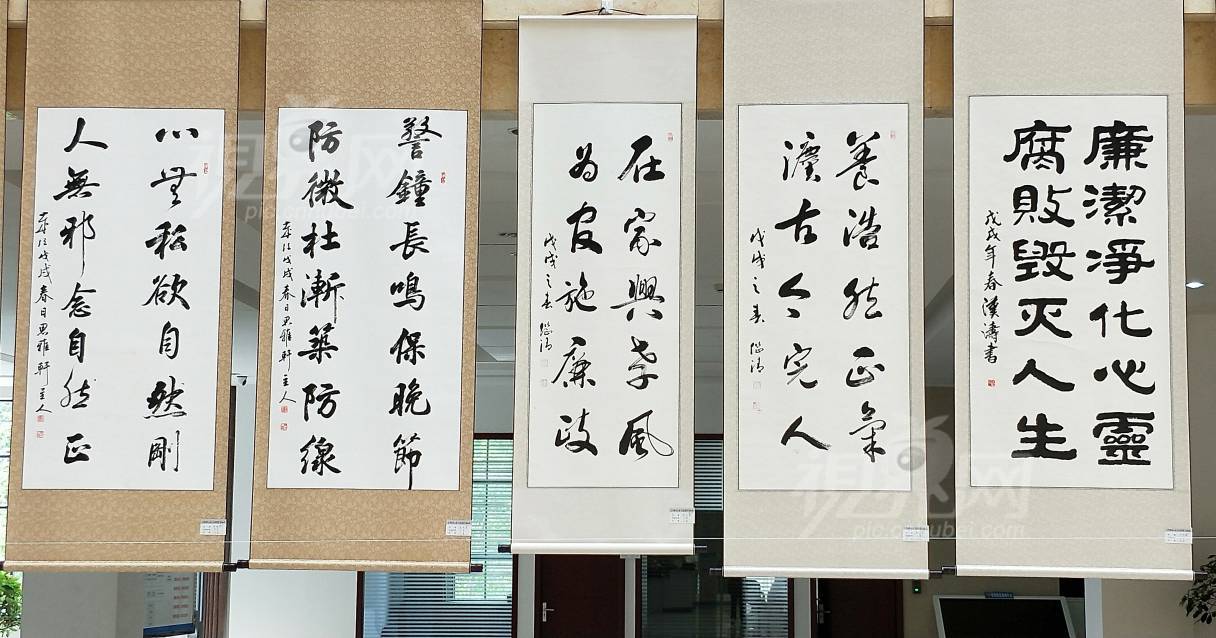 廉潔淨化心靈
腐敗毀灭人生
戊戌年春漢濤書
養浩然正氣
灋古今完人
戊戌之春
在家興孝風
为官施廉政
戊戌之春
警鐘長鳴保晚節
防微杜漸築防線
歲次戊戌春日思雅軒主人
心無私欲自然剛
人無邪念自然正
歲次戊戌春日思雅軒主人
視界网
pic.cnhubei.com